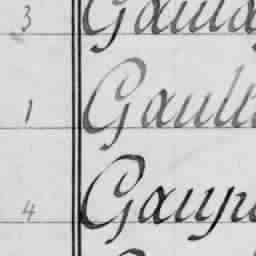 3 Gaula
1 Gault
4 Gaup